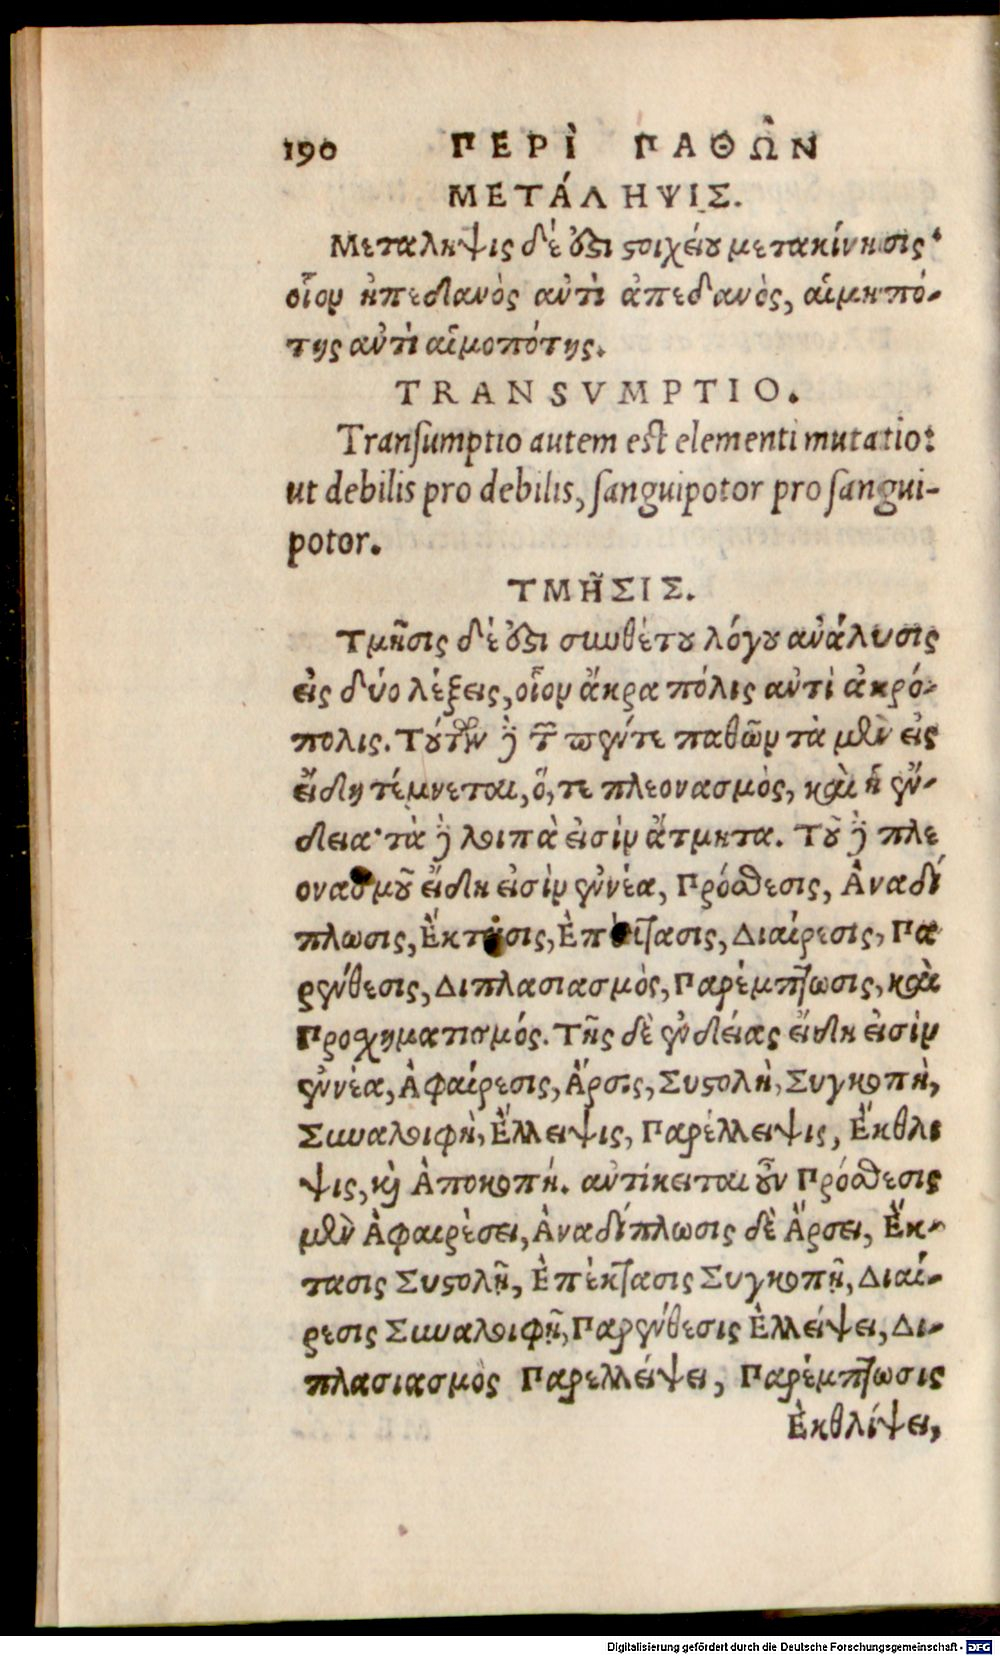 190 ΠΕΡῚ ΠΑΘΩ͂Ν
ΜΕΤΆΛΗΨΙΣ.
Μεταληψις δέ ὅζι ςοιχείου μετακίνησις·
οἷον ἠπεδανὸς αὐτὶ ἀπεδανὸς, αἱμηπό-
της αὐτὶ αἱμοπότης.
TRANSVMPTIO.
Tranſumptio autem est elementi mutatio:
ut debilis pro debilis, ſanguipotor pro ſangui-
potor.
ΤΜΗ͂ΣΙΣ.
Τμῆσις δέ ὅζι σιωθέτου λόγου ἀνάλυσις
εἰς δύο λέξεις, οἷον ἄκρα πόλις αὐτὶ ἀκρό-
πολις. Τούτων ϳ τ̃ πέντε παθῶν τὰ μὲν εἰς
εἴδη τέμνεται, ὅ, τε πλεονασμὸς, καὶ ἡ ἔν-
δεια· τὰ ϳ λοιπὰ εἰσὶν ἄτμητα. Τοῦ ϳ πλε
ονασμοῦ εἴδη εἰσὶν ἐννέα, Πρόσθεσις, Ἀναδί
πλωσις, Ἔκτασις, Ἐπέκτασις, Διαίρεσις, Πα
ρένθεσις, Διπλασιασμὸς, Παρέμπτωσις, καὶ
Προσχηματισμός. Τῆς δὲ ἐνδείας εἴδη εἰσὶν
ἐννέα, Ἀφαίρεσις, Ἄρσις, Συςολὴ, Συγκοπὴ,
Συναλοιφὴ, Ἔλλειψις, Παρέλλειψις, Ἔκθλι
ψις, κỳ Ἀποκοπή. αὐτίκειται οὖν Πρόσθεσις
μὲν Ἀφαιρέσει, Ἀναδίπλωσις δὲ Ἄρσει, Ἔκ-
τασις Συςολῇ, Ἐπέκτασις Συγκοπῇ, Διαί-
ρεσις Συναλοιφῇ, Παρένθεσις Ἐλλείψει, Δι-
πλασιασμὸς Παρελλείψει, Παρέμπτωσις
Ἐκθλίψει,
Digitalisierung gefördert durch die Deutsche Forschungsgemeinschaft - DFG